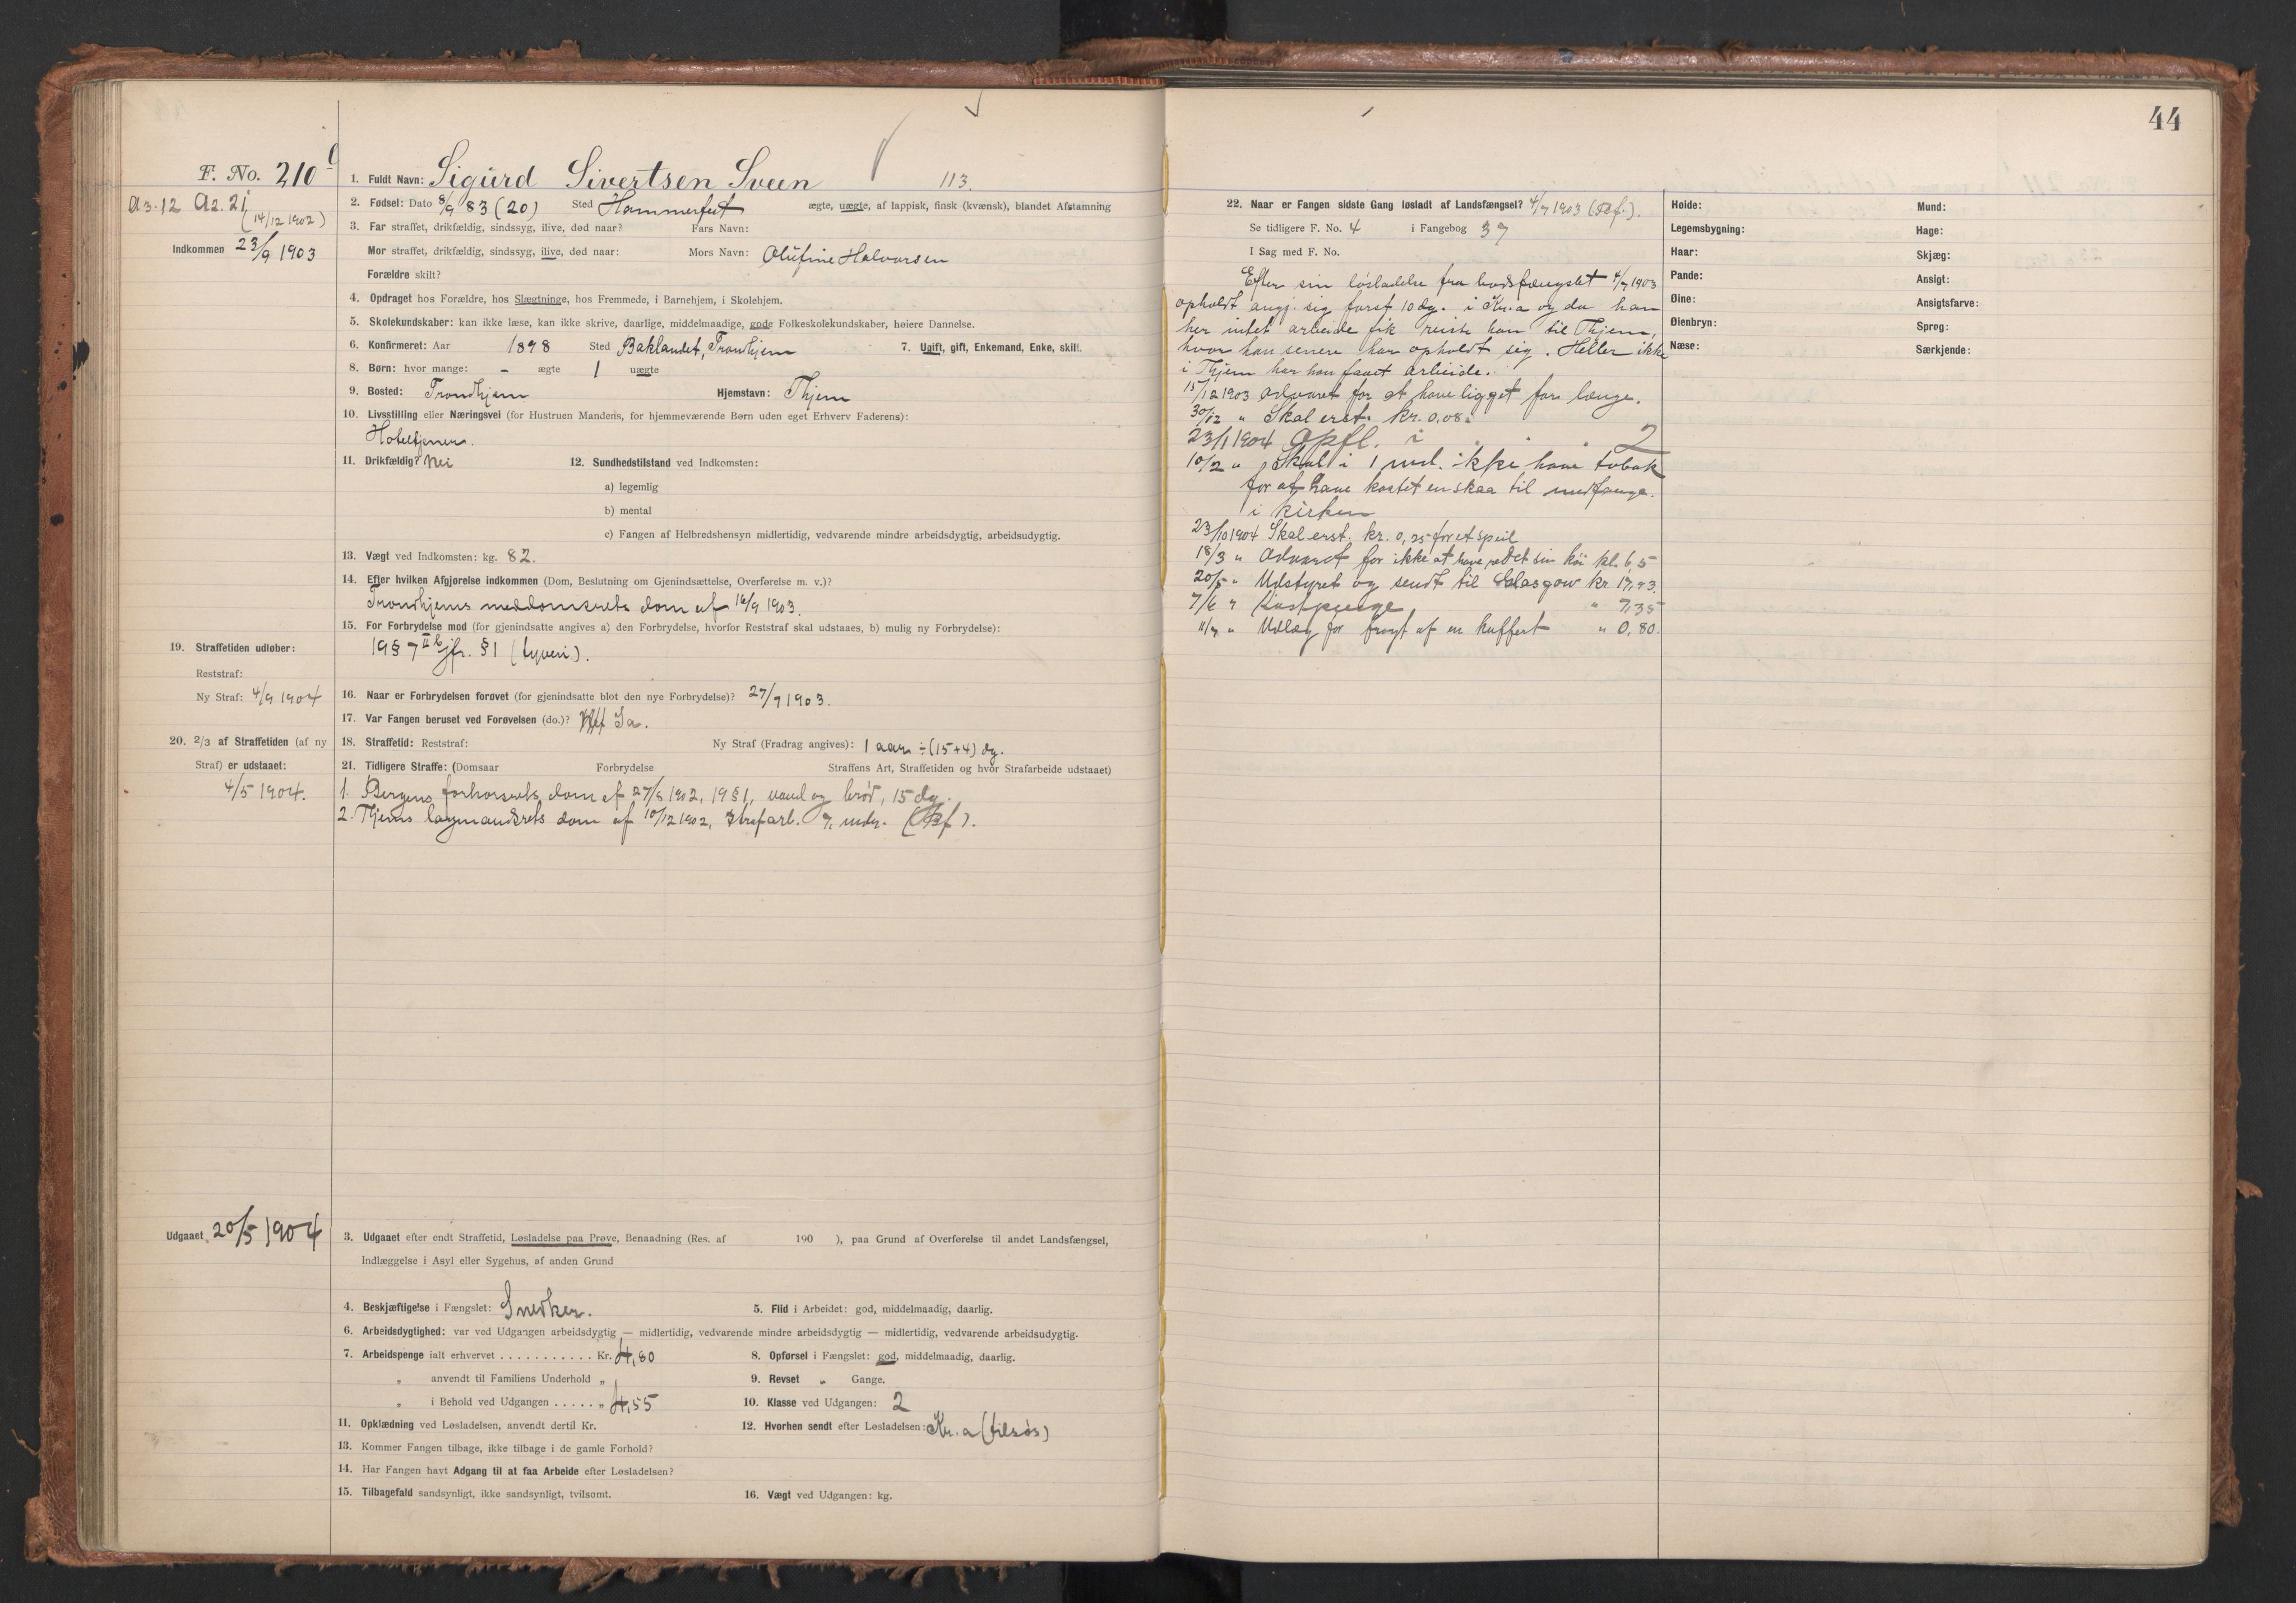 44
F. No. 210
A3-12 A2.21
(14/12 1902)
Indkommen 23/9 1903
1. Fuldt Navn: Sigurd Sivertsen Sveen 113.
2. Fødsel: Dato 8/9 83 (20) Sted Hammerfest ægte, uægte, af lappisk, finsk (kvænsk), blandet Afstamning
3. Far straffet, drikfældig, sindssyg, ilive, død naar? Fars Navn:
Mor straffet, drikfældig, sindssyg, ilive, død naar: Mors Navn: Olufine Halvorsen
Forældre skilt?
4. Opdraget hos Forældre, hos Slægtninge, hos Fremmede, i Barnehjem, i Skolehjem.
5. Skolekundskaber: kan ikke læse, kan ikke skrive, daarlige, middelmaadige, gode Folkeskolekundskaber, høiere Dannelse.
6. Konfirmeret: Aar 1898 Sted Baklandet, Trondhjem 7. Ugift, gift, Enkemand, Enke, skilt.
8. Børn: hvor mange: - ægte 1 uægte
9. Bosted: Trondhjem Hjemstavn: Thjem
10. Livsstilling eller Næringsvei (for Hustruen Mandens, for hjemmeværende Børn uden eget Erhverv Faderens):
Hoteltjener.
11. Drikfældig? Nei 12. Sundhedstilstand ved Indkomsten:
a) legemlig
b) mental
c) Fangen af Helbredshensyn midlertidig, vedvarende mindre arbeidsdygtig, arbeidsudygtig.
13. Vægt ved Indkomsten: kg. 82.
14. Efter hvilken Afgjørelse indkommen (Dom, Beslutning om Gjenindsættelse, Overførelse m. v.)?
Trondhjems meddomsrets dom af 16/9 1903.
15. For Forbrydelse mod (for gjenindsatte angives a) den Forbrydelse, hvorfor Reststraf skal udstaaes, b) mulig ny Forbrydelse):
19 § 7 II b jfr. § 1 (tyveri).
19. Straffetiden udløber:
Reststraf:
Ny Straf: 4/9 1904
16. Naar er Forbrydelsen forøvet (for gjenindsatte blot den nye Forbrydelse)? 27/7 1903.
17. Var Fangen beruset ved Forøvelsen (do.)? Ja.
18. Straffetid: Reststraf: Ny Straf (Fradrag angives): 1 aar ÷ (15+4) dg.
20. 2/3 af Straffetiden (af ny
Straf) er udstaaet:
4/5 1904.
21. Tidligere Straffe: (Domsaar Forbrydelse Straffens Art, Straffetiden og hvor Strafarbeide udstaaet)
1. Bergens forhørsrets dom af 27/8 1902, 19 § 1, vand og brød, 15 dg.
2. Thjems lagmandsrets dom af 10/12 1902, strafarb. 7 mdr. (Bf).
Udgaaet 20/5 1904
3. Udgaaet efter endt Straffetid, Løsladelse paa Prøve, Benaadning (Res. af 190 ), paa Grund af Overførelse til andet Landsfængsel,
Indlæggelse i Asyl eller Sygehus, af anden Grund
4. Beskjæftigelse i Fængslet: Snedker. 5. Flid i Arbeidet: god, middelmaadig, daarlig.
6. Arbeidsdygtighed: var ved Udgangen arbeidsdygtig — midlertidig, vedvarende mindre arbeidsdygtig — midlertidig, vedvarende arbeidsudygtig.
7. Arbeidspenge ialt erhvervet . . . . . . . . . . . Kr. 4,80 8. Opførsel i Fængslet: god, middelmaadig, daarlig.
„ anvendt til Familiens Underhold „ 9. Revset „ Gange.
„ i Behold ved Udgangen . . . . . „ 4,55 10. Klasse ved Udgangen: 2
11. Opklædning ved Løsladelsen, anvendt dertil Kr. 12. Hvorhen sendt efter Løsladelsen: Kr.a (tilsøs)
13. Kommer Fangen tilbage, ikke tilbage i de gamle Forhold?
14. Har Fangen havt Adgang til at faa Arbeide efter Løsladelsen?
15. Tilbagefald sandsynligt, ikke sandsynligt, tvilsomt. 16. Vægt ved Udgangen: kg.
22. Naar er Fangen sidste Gang løsladt af Landsfængsel? 4/7 1903 (Bf.).
Se tidligere F. No. 4 i Fangebog 37
I Sag med F. No.
Efter sin løsladelse fra bodsfængslet 4/7 1903
opholdt angj. sig først 10 dg. i Kr.a og da han
her intet arbeide fik reiste han til Thjem,
hvor han senere har opholdt sig. Heller ikke
i Thjem har han faaet arbeide.
15/12 1903 advaret for at have ligget for længe.
30/12 " Skal erst. kr. 0,08.
23/1 1904 Opfl. i 2
10/2 " Skal i 1 md. ikke have tobak
for at have kastet en skaa til medfange.
i kirken
23/10 1904 Skal erst. kr. 0,25 for et speil
18/3 " Advaret for ikke at have redet sin køi kl. 6,5
20/5 " Udstyret og sendt til Glasgow kr 17,73.
7/6 " Kostpenge " 7,35
11/7 " Udlæg for fragt af en kuffert " 0,80.
Høide:
Legemsbygning:
Haar:
Pande:
Øine:
Øienbryn:
Næse:
Mund:
Hage:
Skjæg:
Ansigt:
Ansigtsfarve:
Sprog:
Særkjende: